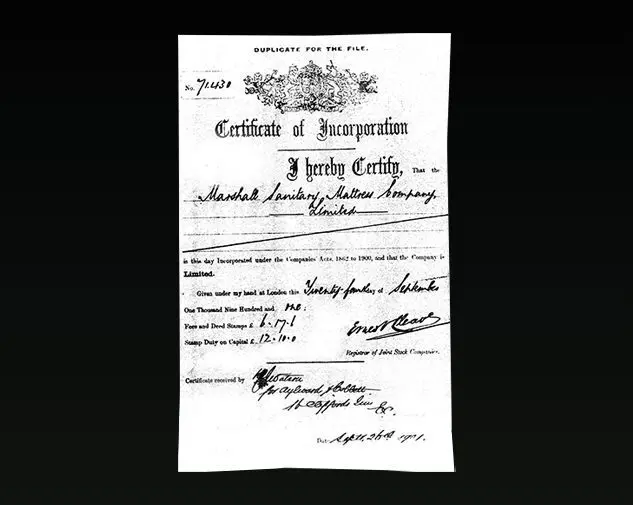 DUPLICATE FOR THE FILE.
No. 71430
Certificate of Incorporation
I hereby Certify, That the
Marshall Sanitary Mattress Company,
Limited
is this day Incorporated under the Companies Acts, 1862 to 1900, and that the Company is
Limited.
Given under my hand at London this Twenty fourth day of September
One Thousand Nine Hundred and one.
Fees and Deed Stamps £ 6.17.6
Stamp Duty on Capital £ 12.10.0
Ernest Cleave
Registrar of Joint Stock Companies.
Certificate received by Watson
for Aylward &
Inn
Date Sept. 26th 1901.